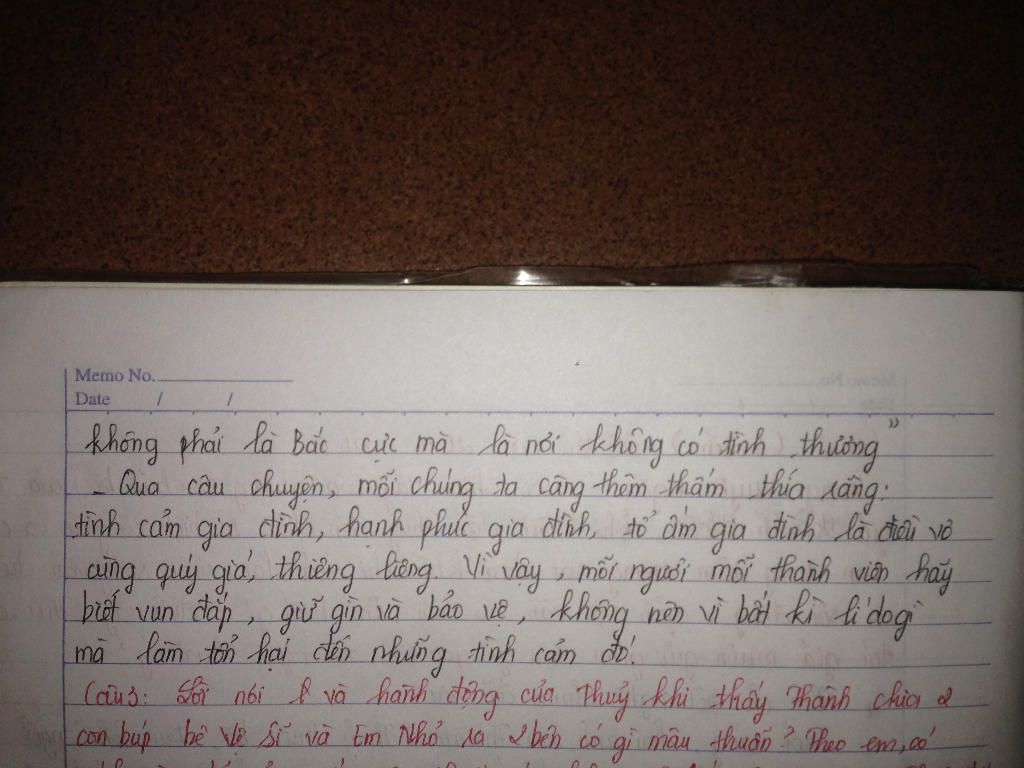 Memo No.
Date / /
không phải là Bắc cực mà là nơi không có tình thương"
- Qua câu chuyện, mỗi chúng ta càng thêm thấm thía rằng:
tình cảm gia đình, hạnh phúc gia đình, tổ ấm gia đình là điều vô
cùng quý giá, thiêng liêng. Vì vậy, mỗi người mỗi thành viên hãy
biết vun đắp, giữ gìn và bảo vệ, không nên vì bất kì lí do gì
mà làm tổn hại đến những tình cảm đó.
Câu 3: Lời nói và hành động của Thuỷ khi thấy Thành chia 2
con búp bê Vệ Sĩ và Em Nhỏ ra 2 bên có gì mâu thuẫn? Theo em, có